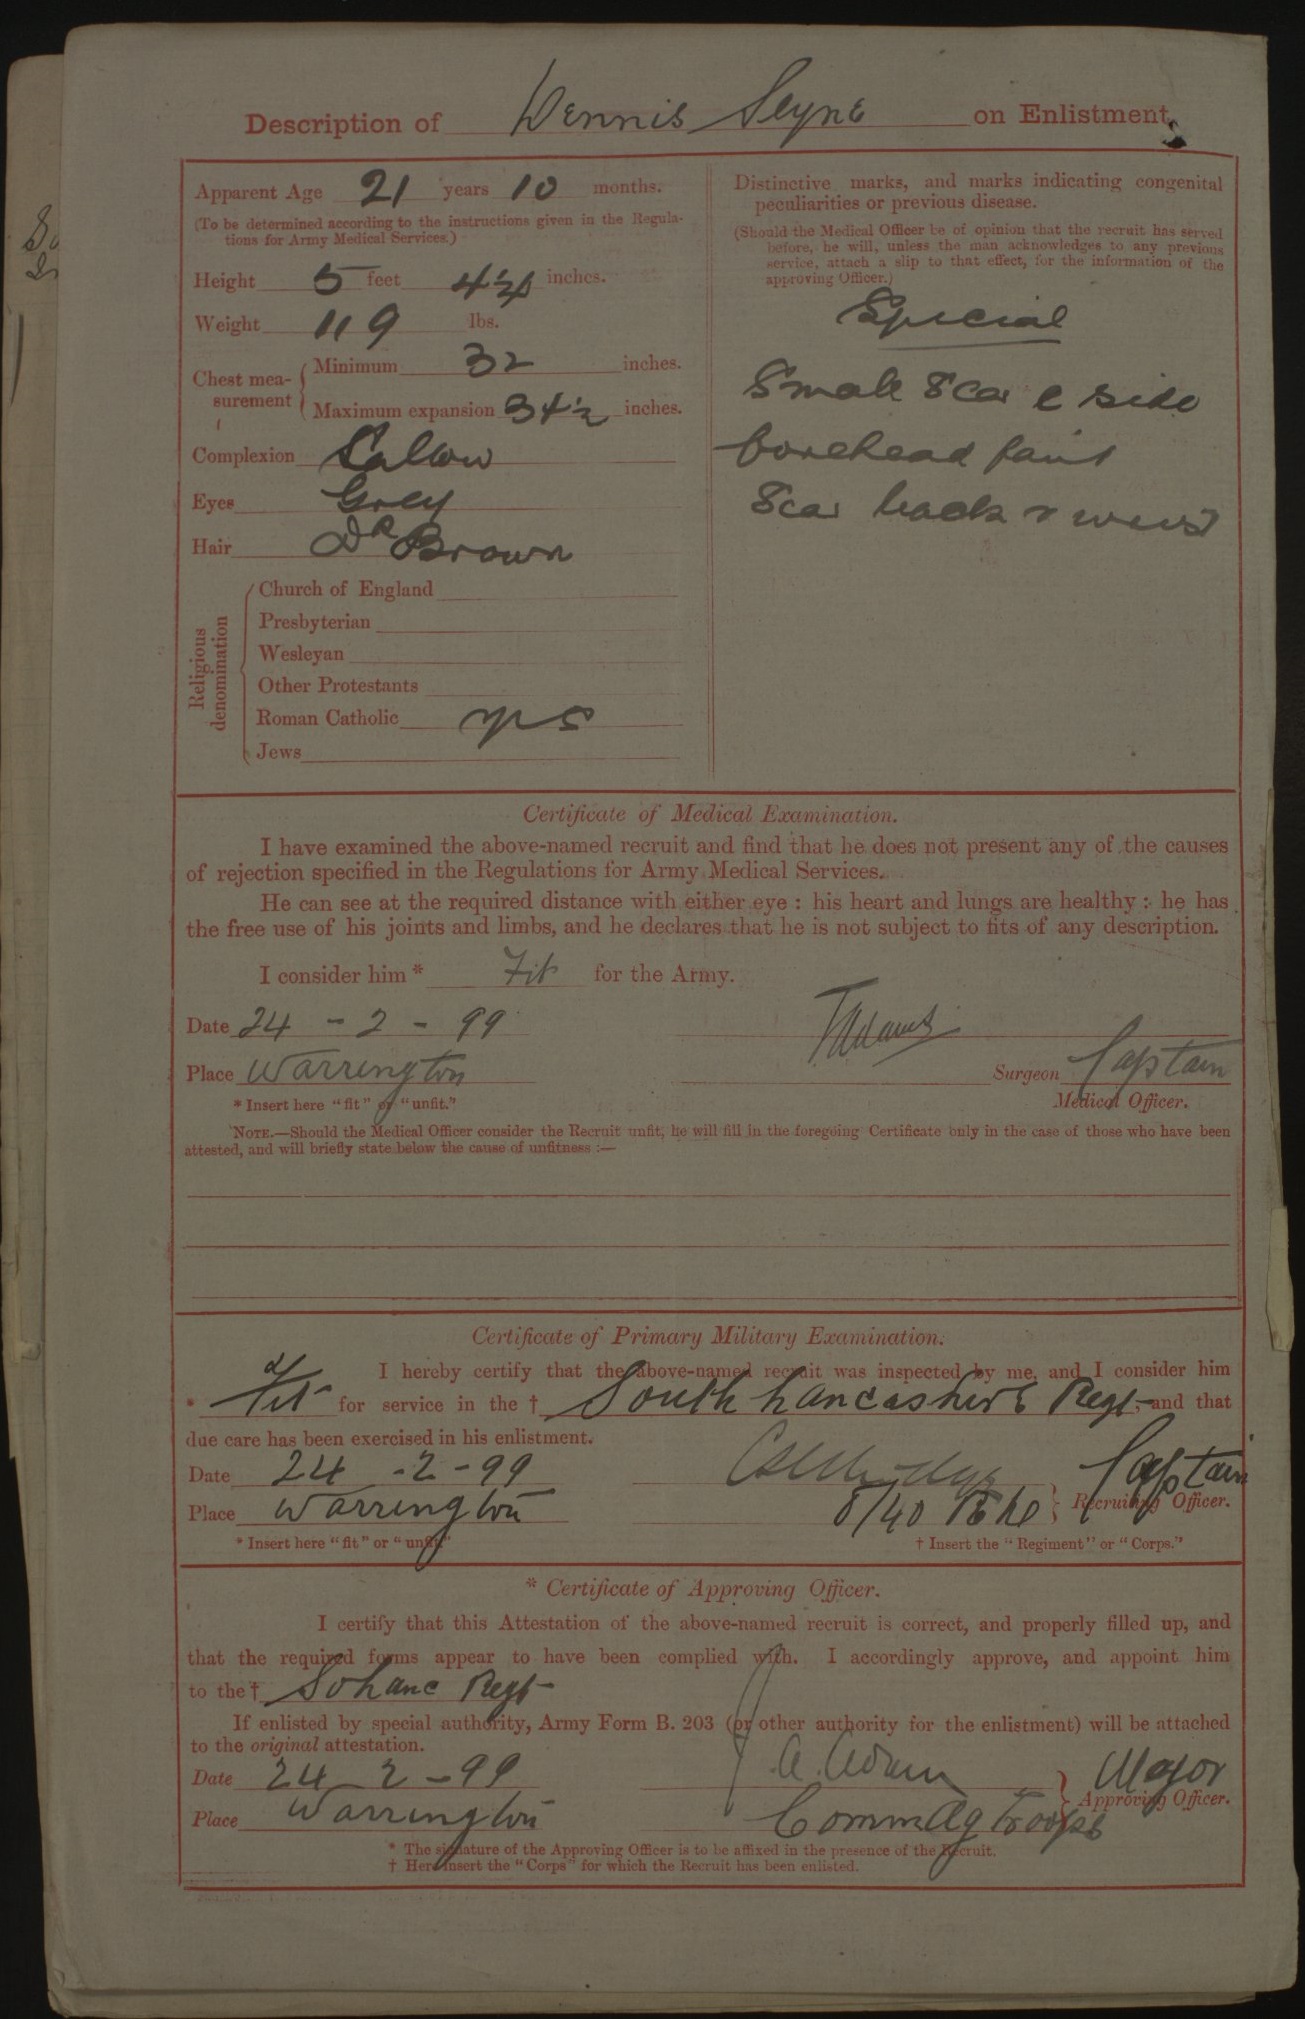 Description of Dennis Slyne on Enlistment.
Apparent Age 21 years 10 months.
(To be determined according to the instructions given in the Regula-
tions for Army Medical Services.)
Height 5 feet 4 1/4 inches.
Weight 119 lbs.
Chest mea-
surement
Minimum 32 inches.
Maximum expansion 34 1/2 inches.
Complexion Sallow
Eyes Grey
Hair Dk Brown
Religious
denomination
Church of England
Presbyterian
Wesleyan
Other Protestants
Roman Catholic yes
Jews
Distinctive marks, and marks indicating congenital
peculiarities or previous disease.
(Should the Medical Officer be of opinion that the recruit has served
before, he will, unless the man acknowledges to any previous
service, attach a slip to that effect, for the information of the
approving Officer.)
Special
Small Scar l side
forehead faint
Scar back r wrist
Certificate of Medical Examination.
I have examined the above-named recruit and find that he does not present any of the causes
of rejection specified in the Regulations for Army Medical Services.
He can see at the required distance with either eye : his heart and lungs are healthy : he has
the free use of his joints and limbs, and he declares that he is not subject to fits of any description.
I consider him * Fit for the Army.
Date 24 - 2 - 99
Place Warrington
Surgeon Captain
* Insert here "fit" or "unfit."
Medical Officer.
NOTE.—Should the Medical Officer consider the Recruit unfit, he will fill in the foregoing Certificate only in the case of those who have been
attested, and will briefly state below the cause of unfitness :—
Certificate of Primary Military Examination.
I hereby certify that the above-named recruit was inspected by me, and I consider him
* Fit for service in the † South Lancashire Regt, and that
due care has been exercised in his enlistment.
Date 24 - 2 - 99 Captain
Place Warrington 8/40 Recruiting Officer.
* Insert here "fit" or "unfit."
† Insert the "Regiment" or "Corps."
* Certificate of Approving Officer.
I certify that this Attestation of the above-named recruit is correct, and properly filled up, and
that the required forms appear to have been complied with. I accordingly approve, and appoint him
to the † So Lanc Regt
If enlisted by special authority, Army Form B. 203 (or other authority for the enlistment) will be attached
to the original attestation.
Date 24 - 2 - 99 Major
Approving Officer.
Place Warrington Commdg Troops
* The signature of the Approving Officer is to be affixed in the presence of the Recruit.
† Here insert the "Corps" for which the Recruit has been enlisted.